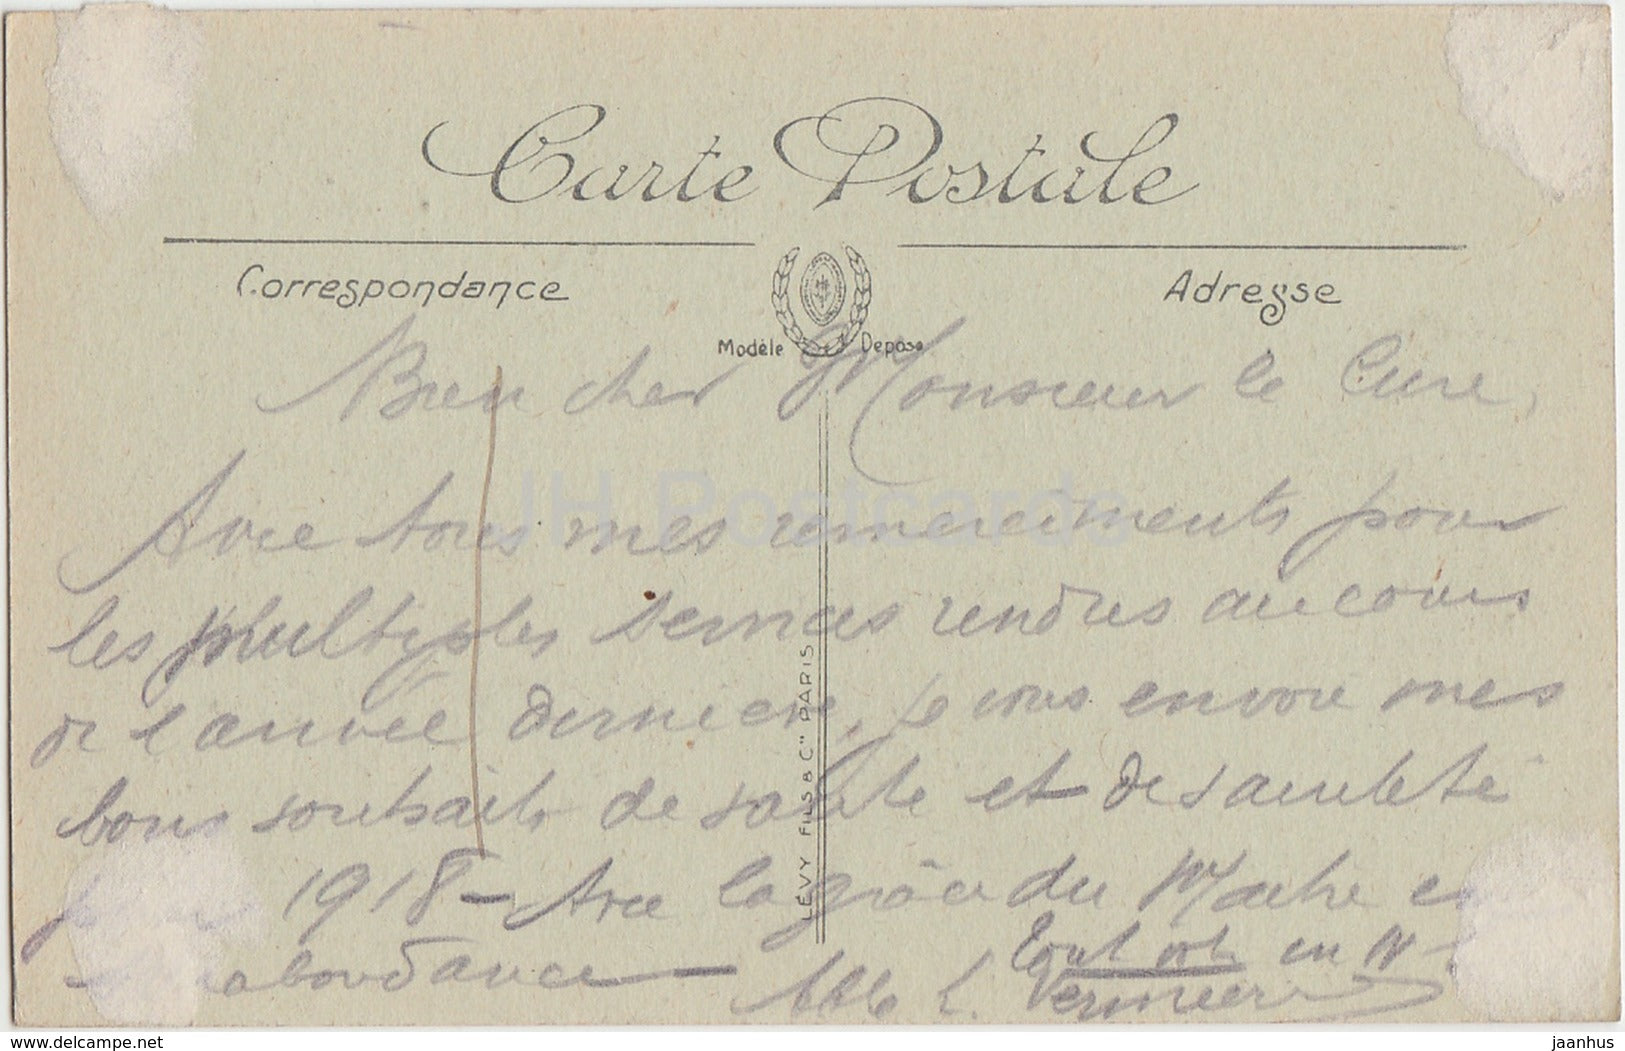 Carte Postale
Correspondance
Adresse
Modèle Déposé
Bien cher Monsieur le Curé,
Avec tous mes remerciements pour
les multiples services rendus au cours
de l'année dernière, je vous envoie mes
bons souhaits de santé et de sainteté
1918 - Avec la grâce du Maître en
abondance -
Tout vôtre en N
Abbé L. Vermeer
LÉVY FILS & Cie PARIS
JH Postcards
delcampe.net
jaanhus